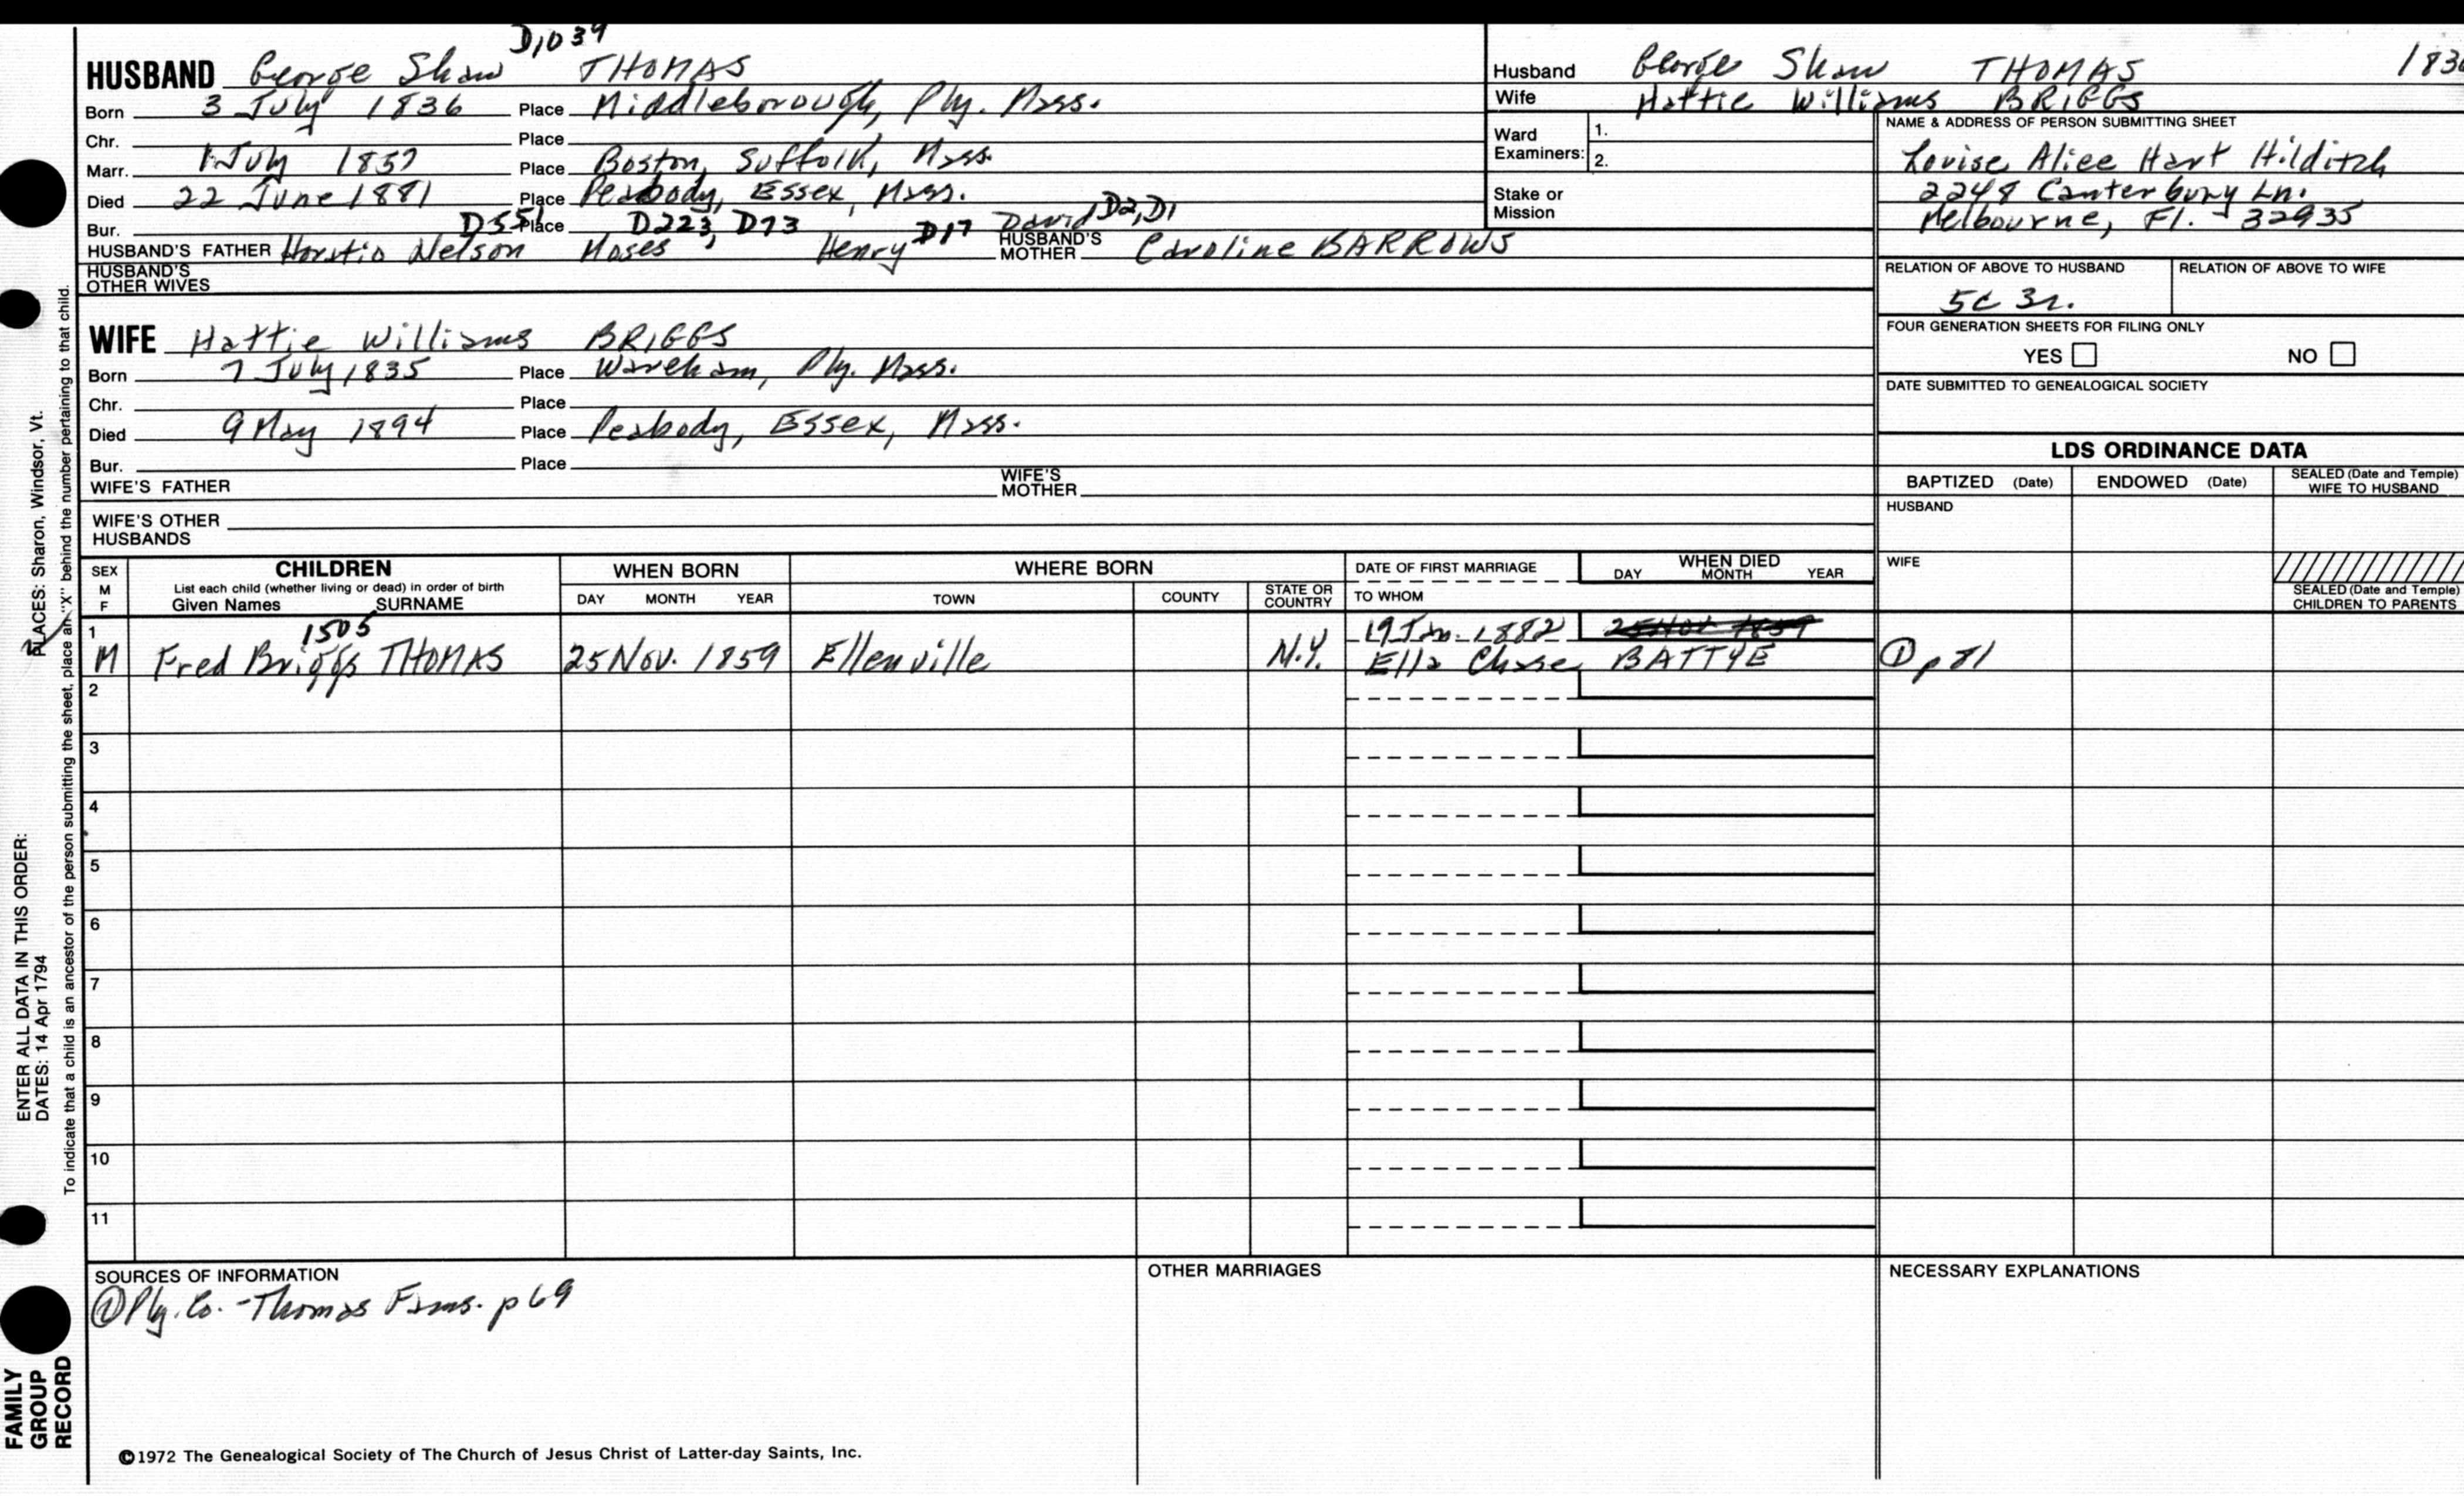 D1039
HUSBAND George Shaw THOMAS
Born 3 July 1836 Place Middleborough, Ply. Mass.
Chr. Place
Marr. 1 July 1857 Place Boston, Suffolk, Mass.
Died 22 June 1881 Place Peabody, Essex, Mass.
Bur. Place
D551 D223, D73 D17 David D2, D1
HUSBAND'S FATHER Horatio Nelson Moses Henry HUSBAND'S MOTHER Caroline BARROWS
HUSBAND'S OTHER WIVES
WIFE Hattie Williams BRIGGS
Born 7 July 1835 Place Wareham, Ply. Mass.
Chr. Place
Died 9 May 1894 Place Peabody, Essex, Mass.
Bur. Place
WIFE'S FATHER WIFE'S MOTHER
WIFE'S OTHER HUSBANDS
Husband George Shaw THOMAS
Wife Hattie Williams BRIGGS
Ward Examiners: 1.
2.
Stake or Mission
NAME & ADDRESS OF PERSON SUBMITTING SHEET
Louise Alice Hart Hilditch
2248 Canterbury Ln.
Melbourne, Fl. - 32935
RELATION OF ABOVE TO HUSBAND RELATION OF ABOVE TO WIFE
5c 3r.
FOUR GENERATION SHEETS FOR FILING ONLY
YES NO
DATE SUBMITTED TO GENEALOGICAL SOCIETY
LDS ORDINANCE DATA
BAPTIZED (Date) ENDOWED (Date) SEALED (Date and Temple) WIFE TO HUSBAND
HUSBAND
WIFE
SEALED (Date and Temple) CHILDREN TO PARENTS
SEX M F
CHILDREN
List each child (whether living or dead) in order of birth
Given Names SURNAME
WHEN BORN
DAY MONTH YEAR
WHERE BORN
TOWN COUNTY STATE OR COUNTRY
DATE OF FIRST MARRIAGE
TO WHOM
WHEN DIED
DAY MONTH YEAR
1 1505 19 Jan. 1882 25 Nov 1859
M Fred Briggs THOMAS 25 Nov. 1859 Ellenville N.Y. Ella Chase BATTYE ① p 81
2
3
4
5
6
7
8
9
10
11
SOURCES OF INFORMATION
① Ply. Co. - Thomas Fams. p 69
OTHER MARRIAGES
NECESSARY EXPLANATIONS
©1972 The Genealogical Society of The Church of Jesus Christ of Latter-day Saints, Inc.
ENTER ALL DATA IN THIS ORDER:
DATES: 14 Apr 1794 PLACES: Sharon, Windsor, Vt.
To indicate that a child is an ancestor of the person submitting the sheet, place an "X" behind the number pertaining to that child.
FAMILY
GROUP
RECORD